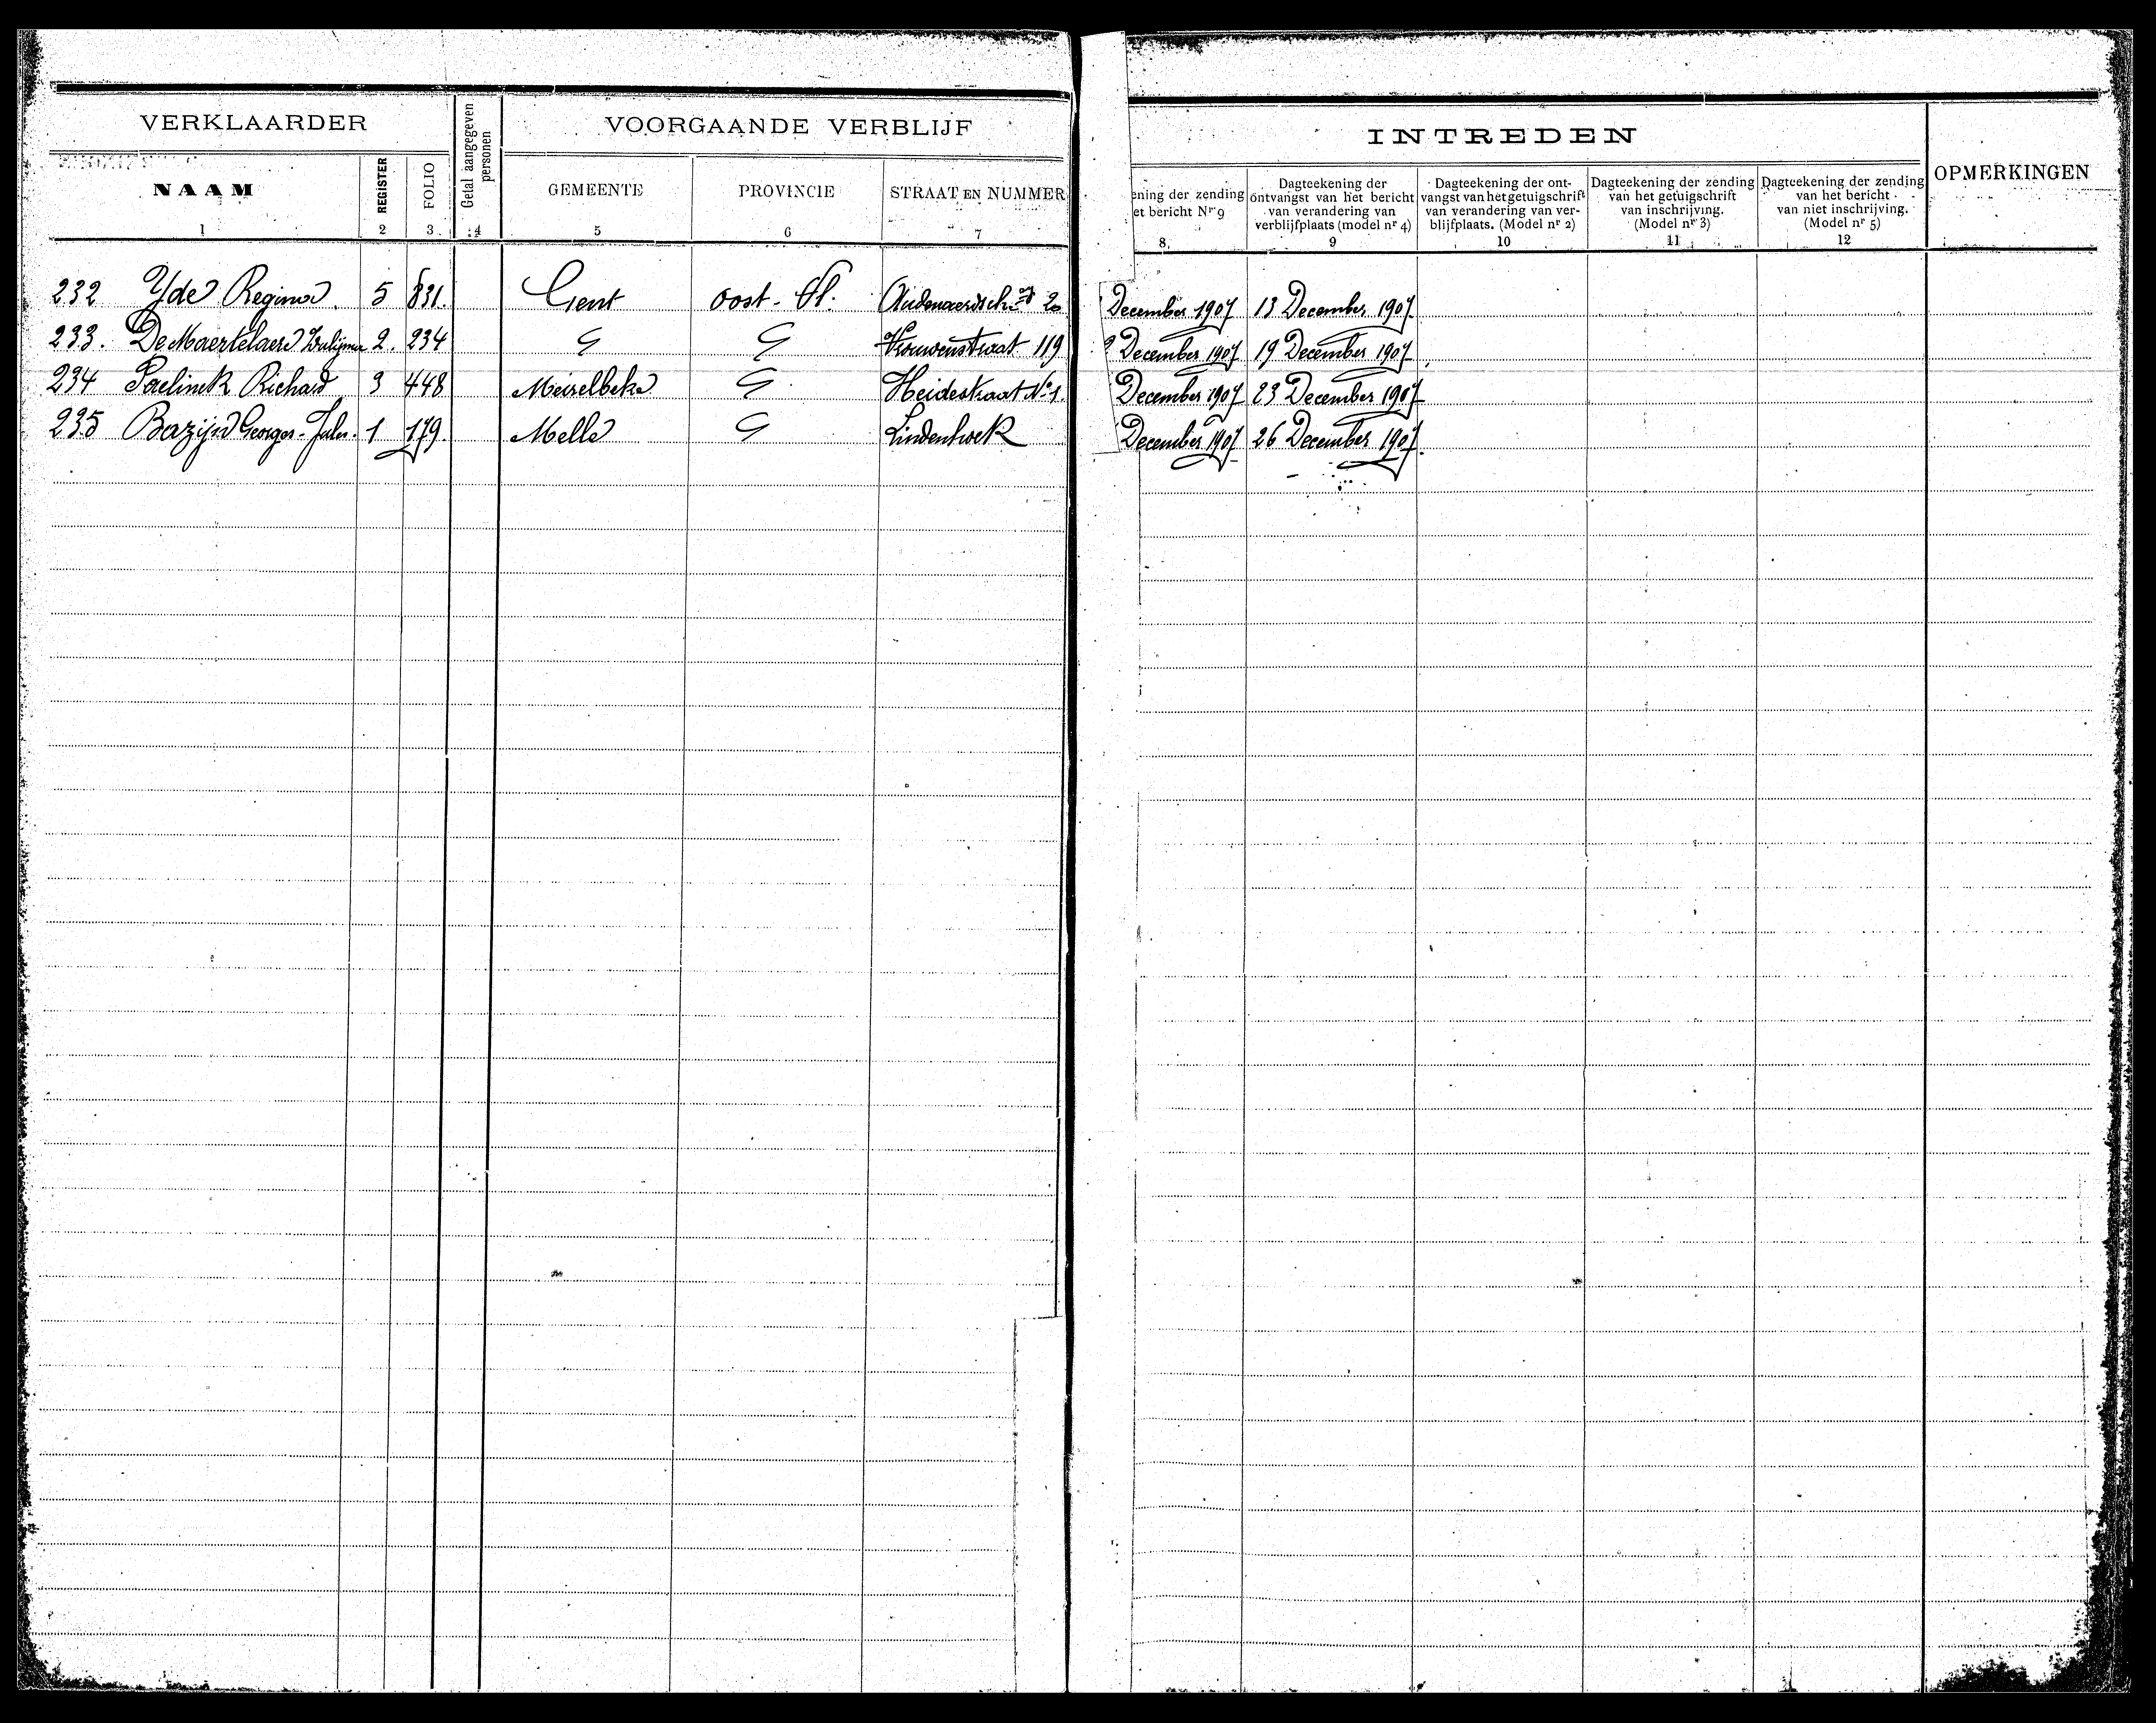 VERKLAARDER
Getal aangegeven personen
VOORGAANDE VERBLIJF
INTREDEN
OPMERKINGEN
NAAM REGISTER FOLIO GEMEENTE PROVINCIE STRAAT EN NUMMER
ening der zending
et bericht Nr 9
Dagteekening der
ontvangst van het bericht
van verandering van
verblijfplaats (model nr 4)
Dagteekening der ont-
vangst van het getuigschrift
van verandering van ver-
blijfplaats. (Model nr 2)
Dagteekening der zending
van het getuigschrift
van inschrijving.
(Model nr 3)
Dagteekening der zending
van het bericht
van niet inschrijving.
(Model nr 5)
1 2 3 4 5 6 7 8 9 10 11 12
232 Yde Regina 5 831. Gent Oost-Vl. 20 December 1907 13 December 1907
233. De Maertelaere 2. 234 Vrouwenstraat 119 December 1907 19 December 1907
234 Paelinck Richard 3 448 Meirelbeke Heidestraat No 1. December 1907 23 December 1907
235 Bazijn Georges-Jules. 1 179. Melle Lindenhoek December 1907 26 December 1907.